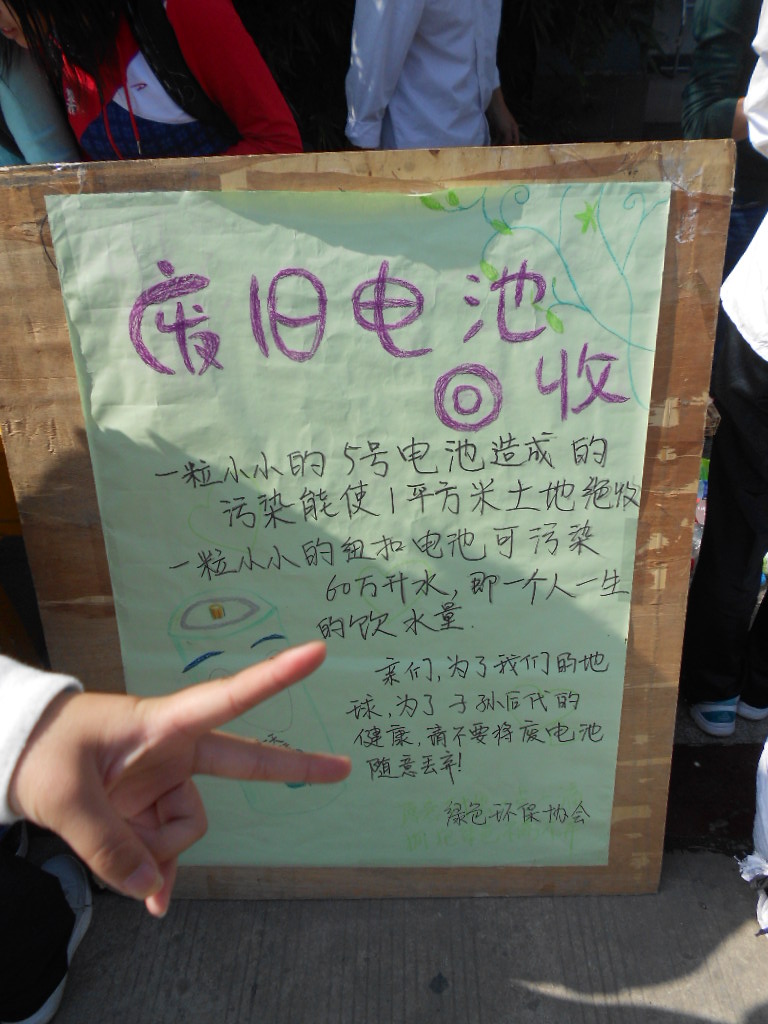 废旧电池
回收
一粒小小的5号电池造成的
污染能使1平方米土地绝收
一粒小小的纽扣电池可污染
60万升水,即一个人一生
的饮水量.
亲们,为了我们的地
球,为了子孙后代的
健康,请不要将废电池
随意丢弃!
绿色环保协会